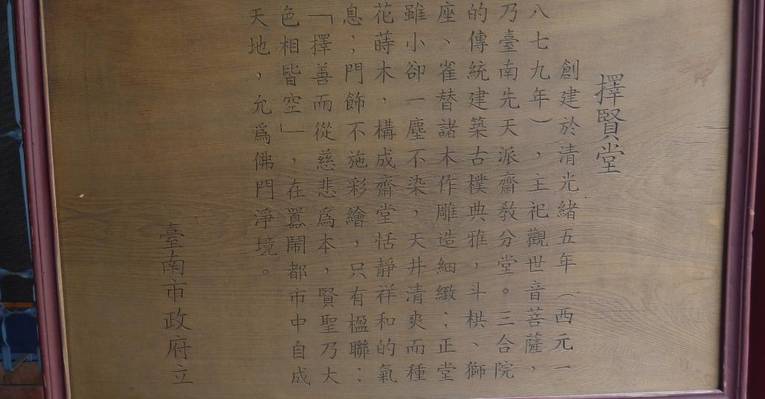 擇賢堂
創建於清光緒五年（西元一
八七九年），主祀觀世音菩薩，
乃臺南先天派齋教分堂。三合院
的傳統建築古樸典雅，斗栱、獅
座、雀替諸木作雕造細緻；正堂
雖小卻一塵不染，天井清爽而種
花蒔木，構成齋堂恬靜祥和的氣
息；門飾不施彩繪，只有楹聯：
「擇善而從慈悲為本，賢聖乃大
色相皆空」一，在囂鬧都市中自成
天地，允為佛門淨境。
臺南市政府立